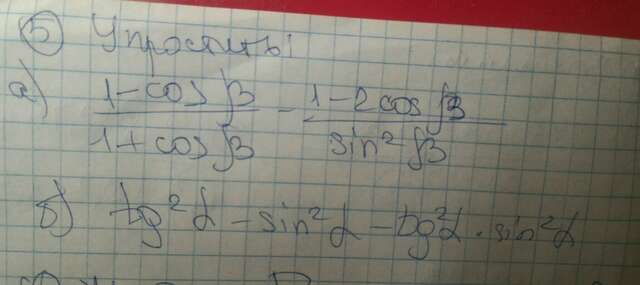 5 Упростить
а) (1 - cos β)/(1 + cos β) - (1 - 2 cos β)/(sin² β)
б) tg² α - sin² α - tg² α · sin² α